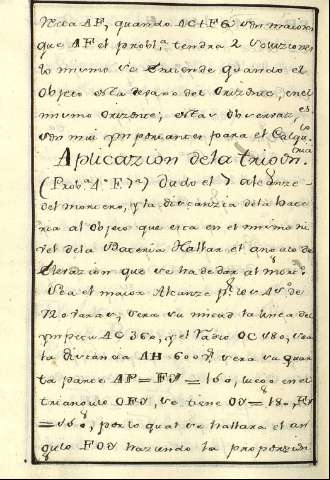 recta AF, quando AC+FG son maiores
que AF el probl.ª tendra 2 soluziones
lo mismo se entiende quando el
objeto esta devajo del orizonte, en el
mismo orizonte; estas observaz.es
son mui ymportantes para el calculo
Aplicazion de la trigon.
del mortero, y la distanzia de la bate
ria al objeto que esta en el mismo ni
vel de la Bateria Hallar el angulo de
Elevazion que se ha de dar al mor.º
Sea el maior Alcanze p.r
de
720 varas, sera su mitad la linea del
ympetu AC 360, y el radio OC 180, sea
la distancia AH 600 sera su quar
ta parte AP = FY = 150, luego en el
triangulo OFY, se tiene OF = 180, FY
= 150, por lo qual se hallara el an
gulo FOY haziendo la proporzion